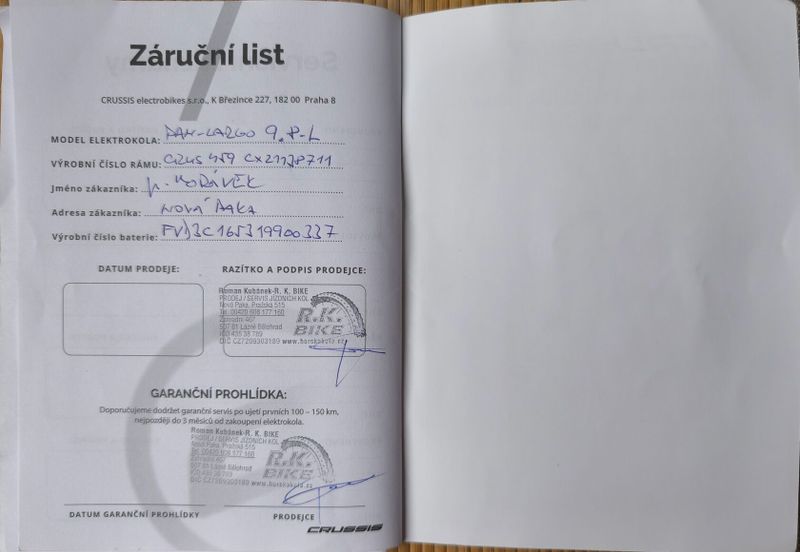 Záruční list
CRUSSIS electrobikes s.r.o., K Březince 227, 182 00 Praha 8
MODEL ELEKTROKOLA: PAN-CARGO 9.8-L
VÝROBNÍ ČÍSLO RÁMU: CRUS 459 CX21138711
Jméno zákazníka: p. MORÁVEK
Adresa zákazníka: NOVÁ PAKA
Výrobní číslo baterie: FVD3C165319900337
DATUM PRODEJE: RAZÍTKO A PODPIS PRODEJCE:
Roman Kubánek-R. K. BIKE
PRODEJ / SERVIS JÍZDNÍCH KOL
Nová Paka, Pražská 515
Tel. 00420 608 177 160
Závodní 467
507 81 Lázně Bělohrad
IČO 435 38 789
DIČ CZ7209303189 www.horskakola.cz
R.K.
BIKE
GARANČNÍ PROHLÍDKA:
Doporučujeme dodržet garanční servis po ujetí prvních 100 – 150 km,
nejpozději do 3 měsíců od zakoupení elektrokola.
Roman Kubánek-R. K. BIKE
PRODEJ / SERVIS JÍZDNÍCH KOL
Nová Paka, Pražská 515
Tel. 00420 608 177 160
Závodní 467
507 81 Lázně Bělohrad
IČO 435 38 789
DIČ CZ7209303189 www.horskakola.cz
R.K.
BIKE
DATUM GARANČNÍ PROHLÍDKY PRODEJCE
CRUSSIS